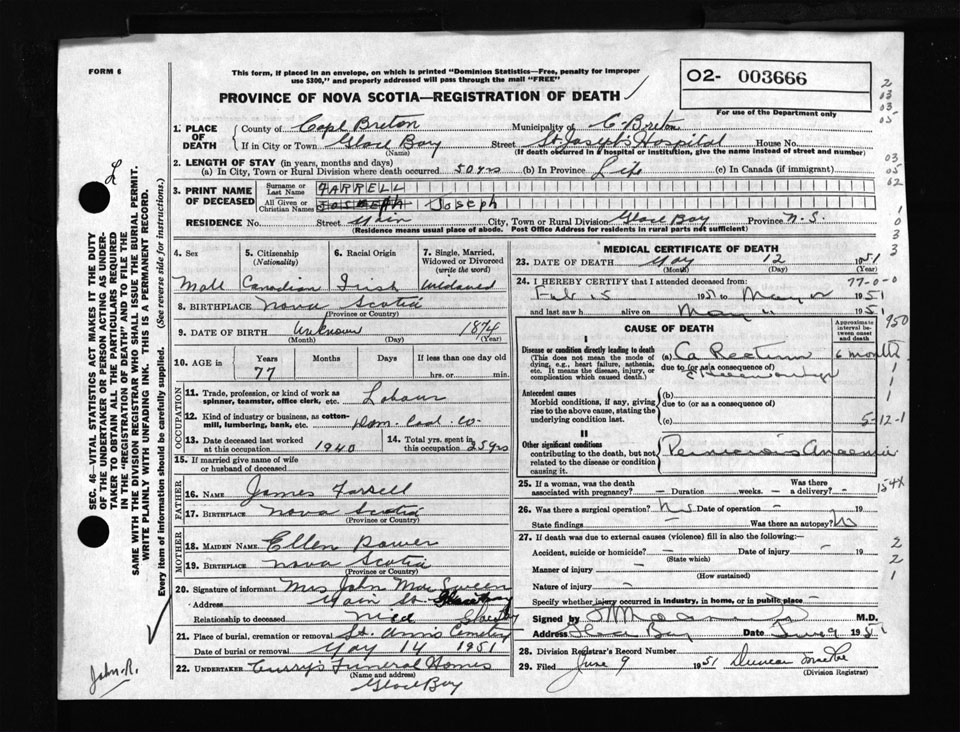 FORM 6
This form, if placed in an envelope, on which is printed "Dominion Statistics—Free, penalty for improper
use $300," and properly addressed will pass through the mail "FREE"
PROVINCE OF NOVA SCOTIA—REGISTRATION OF DEATH
02- 003666
For use of the Department only
1. PLACE OF DEATH
County of Cape Breton Municipality of C. Breton
If in City or Town Glace Bay Street St Joseph's Hospital House No.
(Name) (If death occurred in a hospital or institution, give the name instead of street and number)
2. LENGTH OF STAY (in years, months and days)
(a) In City, Town or Rural Division where death occurred 50 yrs (b) In Province Life (c) In Canada (if immigrant)
3. PRINT NAME OF DECEASED
Surname or Last Name FARRELL
All Given or Christian Names JOSEPH Joseph
RESIDENCE No. Street Main City, Town or Rural Division Glace Bay Province N.S
(Residence means usual place of abode. Post Office Address for residents in rural parts not sufficient)
4. Sex
Male
5. Citizenship (Nationality)
Canadian
6. Racial Origin
Irish
7. Single, Married, Widowed or Divorced (write the word)
Widowed
8. BIRTHPLACE Nova Scotia
(Province or Country)
9. DATE OF BIRTH Unknown 1874
(Month) (Day) (Year)
10. AGE in Years Months Days If less than one day old
77 hrs. or min.
OCCUPATION
11. Trade, profession, or kind of work as
spinner, teamster, office clerk, etc. Labour
12. Kind of industry or business, as cotton-
mill, lumbering, bank, etc. Dom. Coal Co.
13. Date deceased last worked
at this occupation 1940
14. Total yrs. spent in
this occupation 25 yrs
15. If married give name of wife
or husband of deceased
FATHER
16. NAME James Farrell
17. BIRTHPLACE Nova Scotia
(Province or Country)
MOTHER
18. MAIDEN NAME Ellen Power
19. BIRTHPLACE Nova Scotia
(Province or Country)
20. Signature of informant Mrs John Mac Sween
Address Main St. Glace Bay
Relationship to deceased niece Glace Bay
21. Place of burial, cremation or removal St. Ann's Cemetery
Date of burial or removal May 14 1951
22. UNDERTAKER Curry's Funeral Homes
(Name and address)
Glace Bay
MEDICAL CERTIFICATE OF DEATH
23. DATE OF DEATH May 12 1951
(Month) (Day) (Year)
24. I HEREBY CERTIFY that I attended deceased from: 77-0-0
Feb 15 1951 to May 12 1951
and last saw h alive on May 11 1951
CAUSE OF DEATH
Approximate interval between onset and death
I
Disease or condition directly leading to death
(This does not mean the mode of
dying, e.g., heart failure, asthenia,
etc. It means the disease, injury, or
complication which caused death.)
(a) Ca Rectum 6 months
due to (or as a consequence of)
Antecedent causes
Morbid conditions, if any, giving
rise to the above cause, stating the
underlying condition last.
(b)
due to (or as a consequence of)
(c) 5-12-1
II
Other significant conditions
contributing to the death, but not
related to the disease or condition
causing it.
Pernicious Anaemia
25. If a woman, was the death
associated with pregnancy? — Duration weeks. — Was there a delivery? —
154X
26. Was there a surgical operation? No Date of operation — 19
State findings — Was there an autopsy? No
27. If death was due to external causes (violence) fill in also the following:—
Accident, suicide or homicide? — Date of injury — 19
(State which)
Manner of injury —
(How sustained)
Nature of injury —
Specify whether injury occurred in industry, in home, or in public place —
Signed by M.D.
Address Glace Bay Date June 9 1951
28. Division Registrar's Record Number
29. Filed June 9 1951 Duncan
(Division Registrar)
SEC. 46—VITAL STATISTICS ACT MAKES IT THE DUTY
OF THE UNDERTAKER OR PERSON ACTING AS UNDER-
TAKER TO OBTAIN ALL THE PARTICULARS REQUIRED
IN THE "REGISTRATION OF DEATH" AND TO FILE THE
SAME WITH THE DIVISION REGISTRAR WHO SHALL ISSUE THE BURIAL PERMIT.
WRITE PLAINLY WITH UNFADING INK. THIS IS A PERMANENT RECORD.
Every item of information should be carefully supplied. (See reverse side for instructions.)
L
John R.
2
03
03
05
03
05
02
1
0
3
3
950
1
1
1
2
2
1